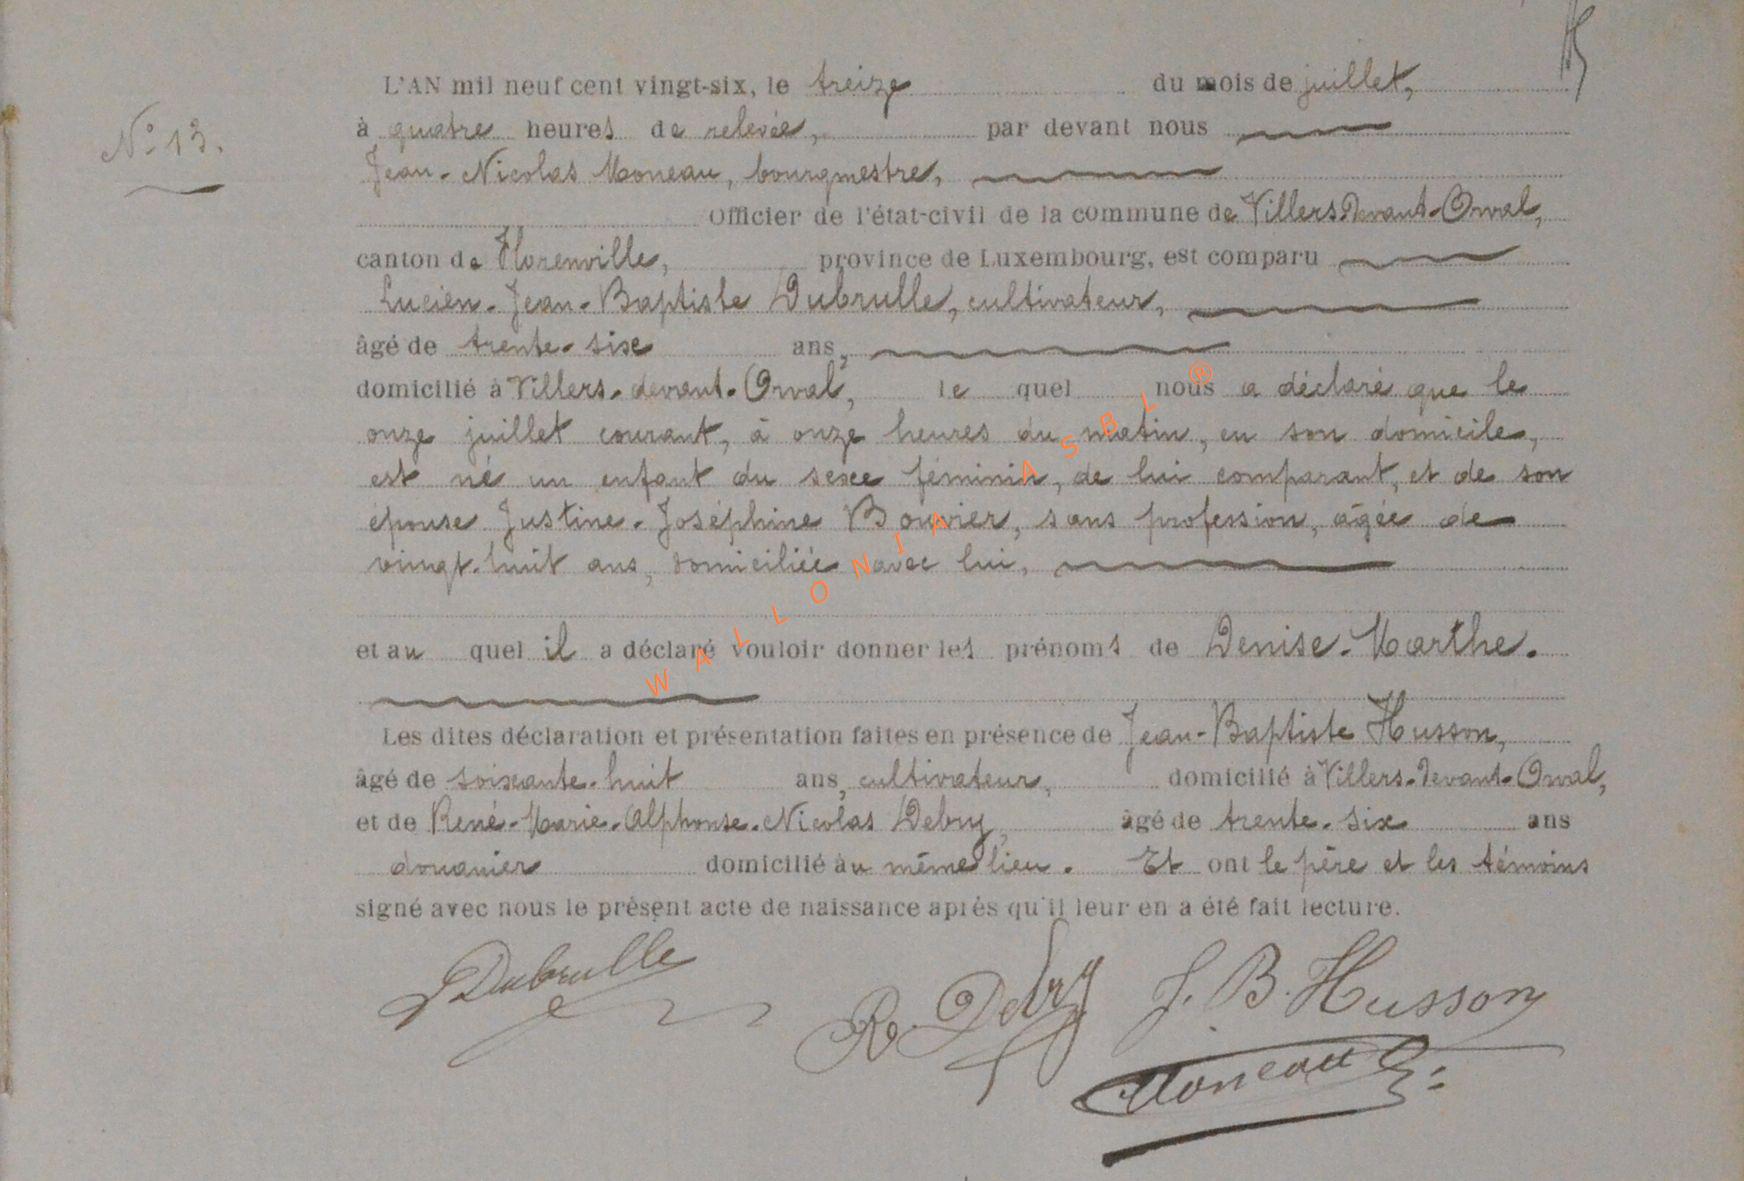 L'AN mil neuf cent vingt-six, le treize du mois de juillet,
N° 13.
à quatre heures de relevée, par devant nous
Jean-Nicolas Moneau, bourgmestre,
Officier de l'état-civil de la commune de Villers-devant-Orval,
canton de Florenville, province de Luxembourg, est comparu
Lucien-Jean-Baptiste Dubrulle, cultivateur,
âgé de trente-six ans,
domicilié à Villers-devant-Orval, le quel nous a déclaré que le
onze juillet courant, à onze heures du matin, en son domicile,
est né un enfant du sexe féminin, de lui comparant, et de son
épouse Justine-Joséphine Bouvier, sans profession, âgée de
vingt-huit ans, domiciliée avec lui,
et au quel il a déclaré vouloir donner les prénoms de Denise-Marthe.
Les dites déclaration et présentation faites en présence de Jean-Baptiste Husson,
âgé de soixante-huit ans, cultivateur, domicilié à Villers-devant-Orval,
et de René-Marie-Alphonse-Nicolas Debry, âgé de trente-six ans
douanier domicilié au même lieu. Et ont le père et les témoins
signé avec nous le présent acte de naissance après qu'il leur en a été fait lecture.
Dubrulle
R. Debry
J. B. Husson
Moneau
WALLONIA ASBL ®